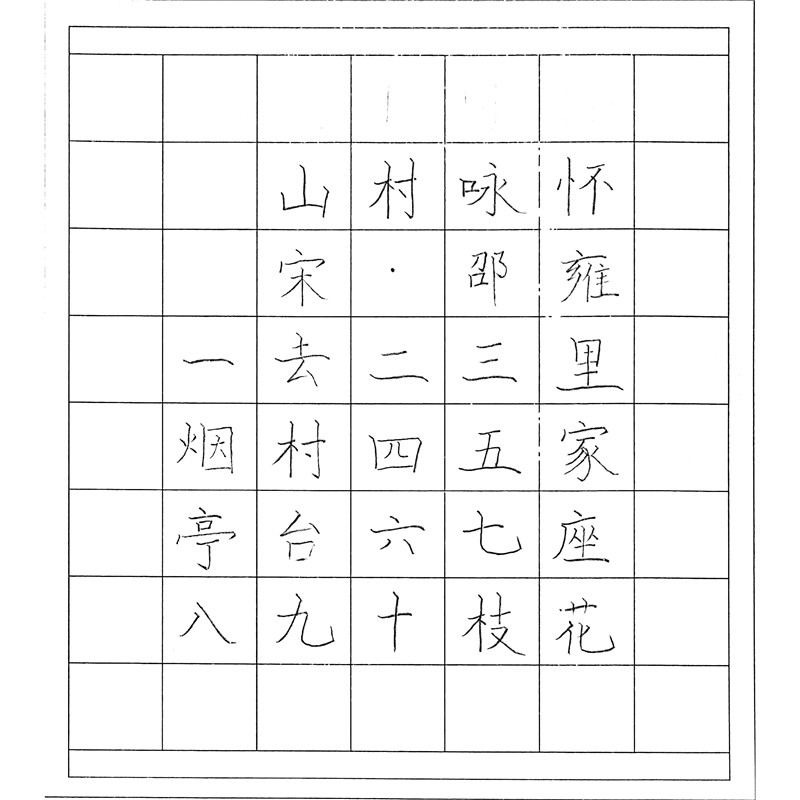 山村咏怀
宋·邵雍
一去二三里
烟村四五家
亭台六七座
八九十枝花